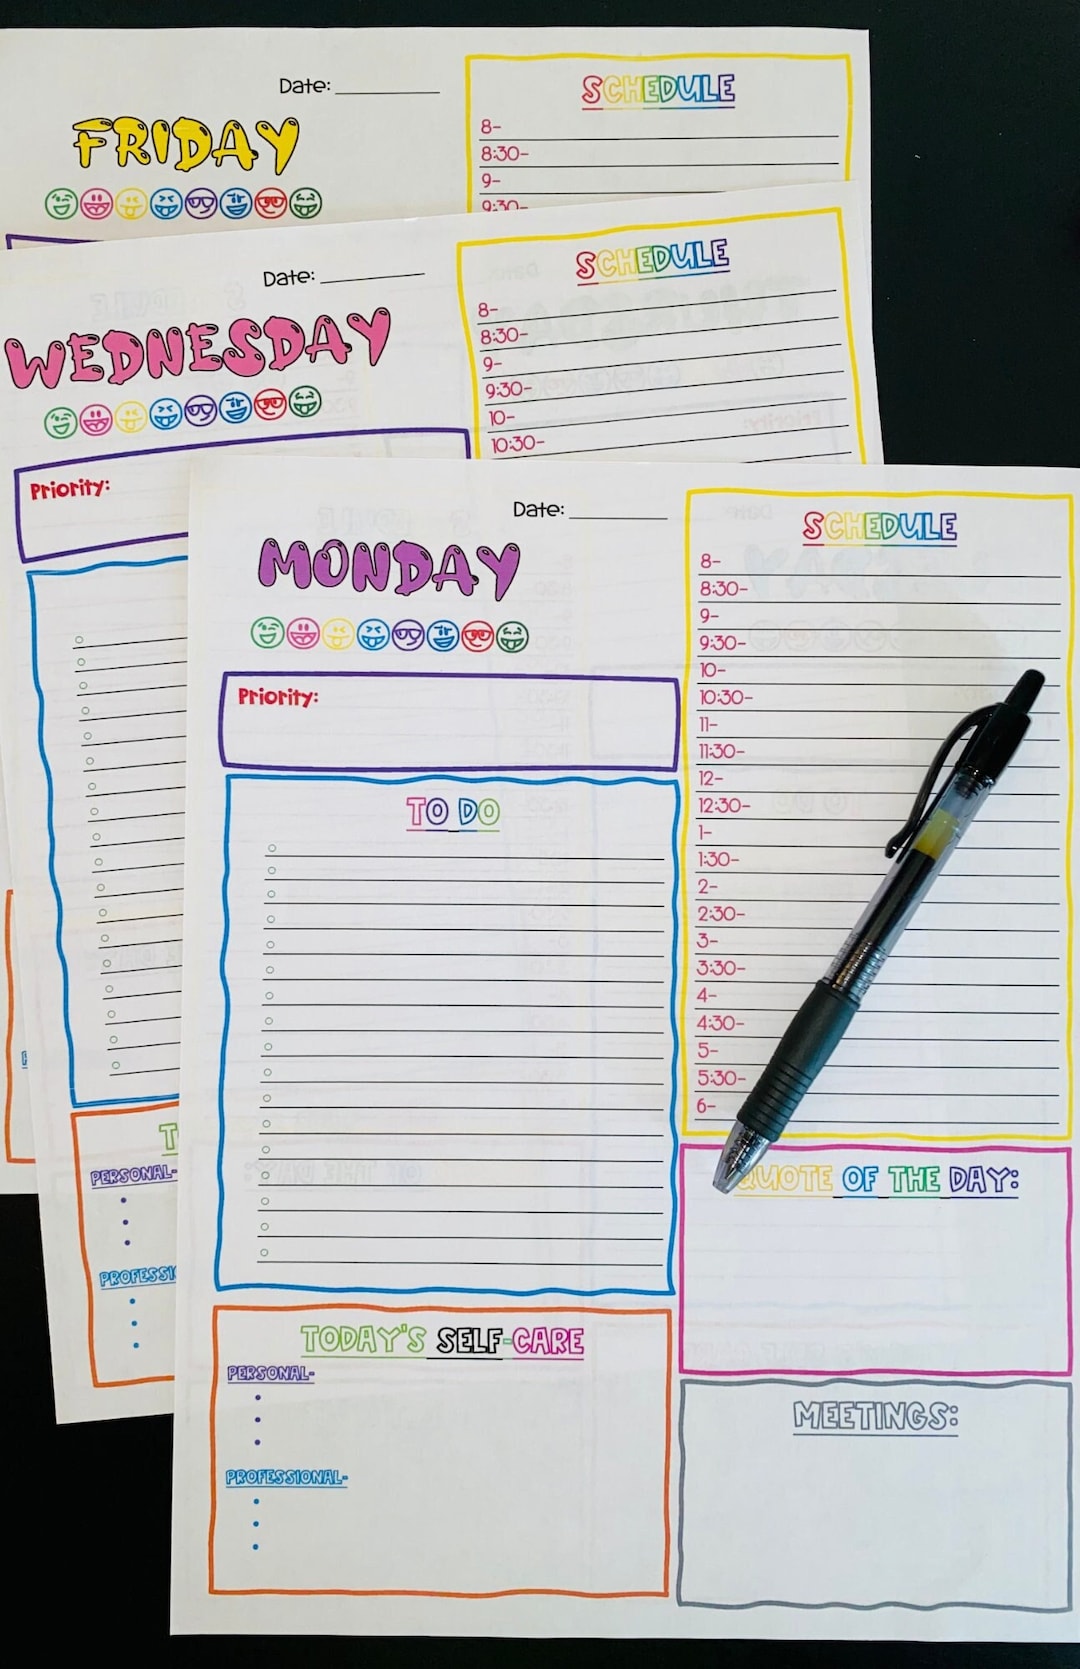 Date:
FRIDAY
SCHEDULE
8-
8:30-
9-
9:30-
Date:
WEDNESDAY
SCHEDULE
8-
8:30-
9-
9:30-
10-
10:30-
Priority:
PERSONAL-
Date:
MONDAY
Priority:
TO DO
SCHEDULE
8-
8:30-
9-
9:30-
10-
10:30-
11-
11:30-
12-
12:30-
1-
1:30-
2-
2:30-
3-
3:30-
4-
4:30-
5-
5:30-
6-
QUOTE OF THE DAY:
TODAY'S SELF-CARE
PERSONAL-
PROFESSIONAL-
MEETINGS: